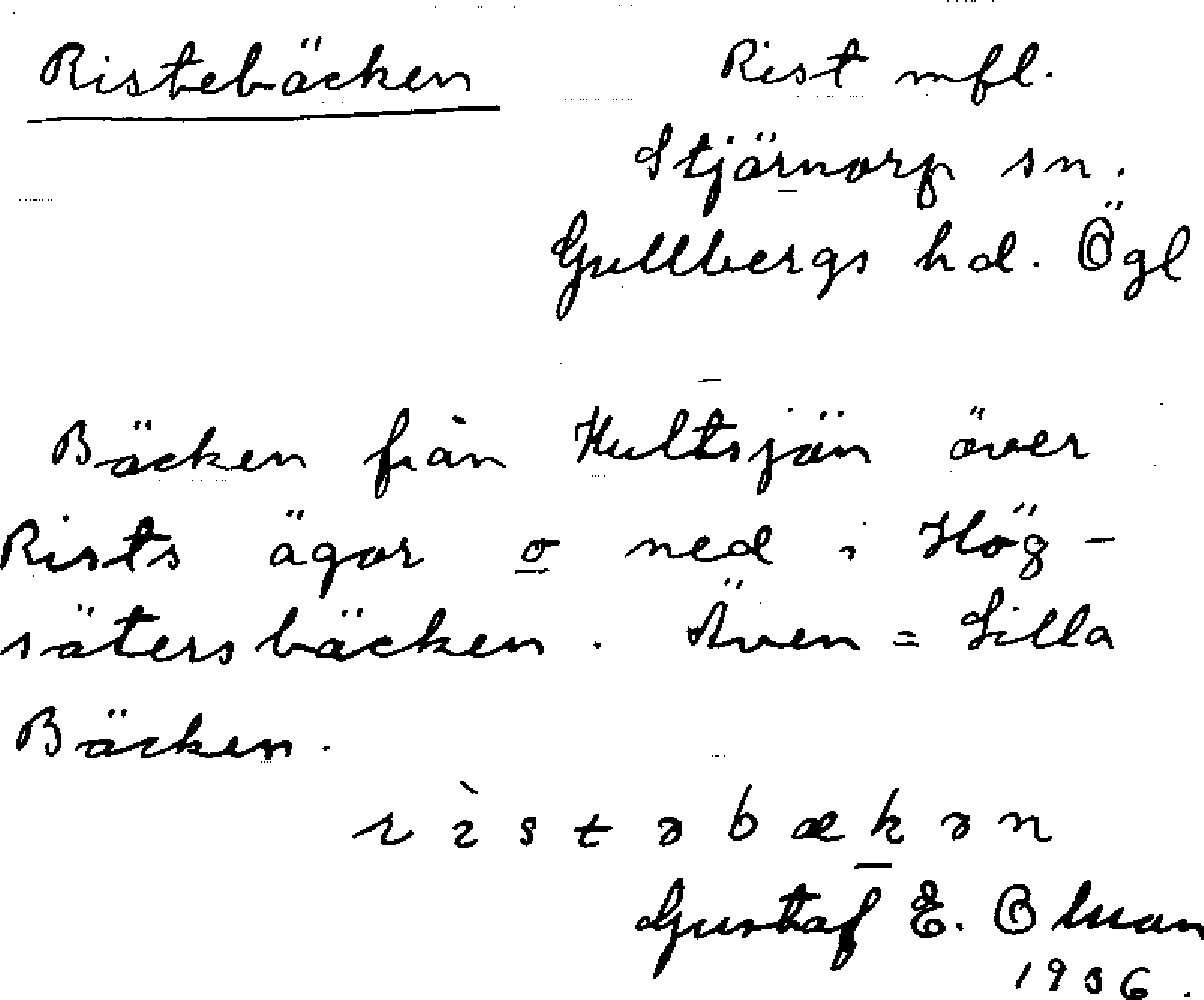 Ristebäcken
Rist mfl.
Stjärnorp sn.
Gullbergs hd. Ögl
Bäcken från Hultsjön över
Rists ägor o ned i Hög-
sätersbäcken. Även = Lilla
Bäcken.
rìstəbækən
Gustaf E. Ohman
1936.